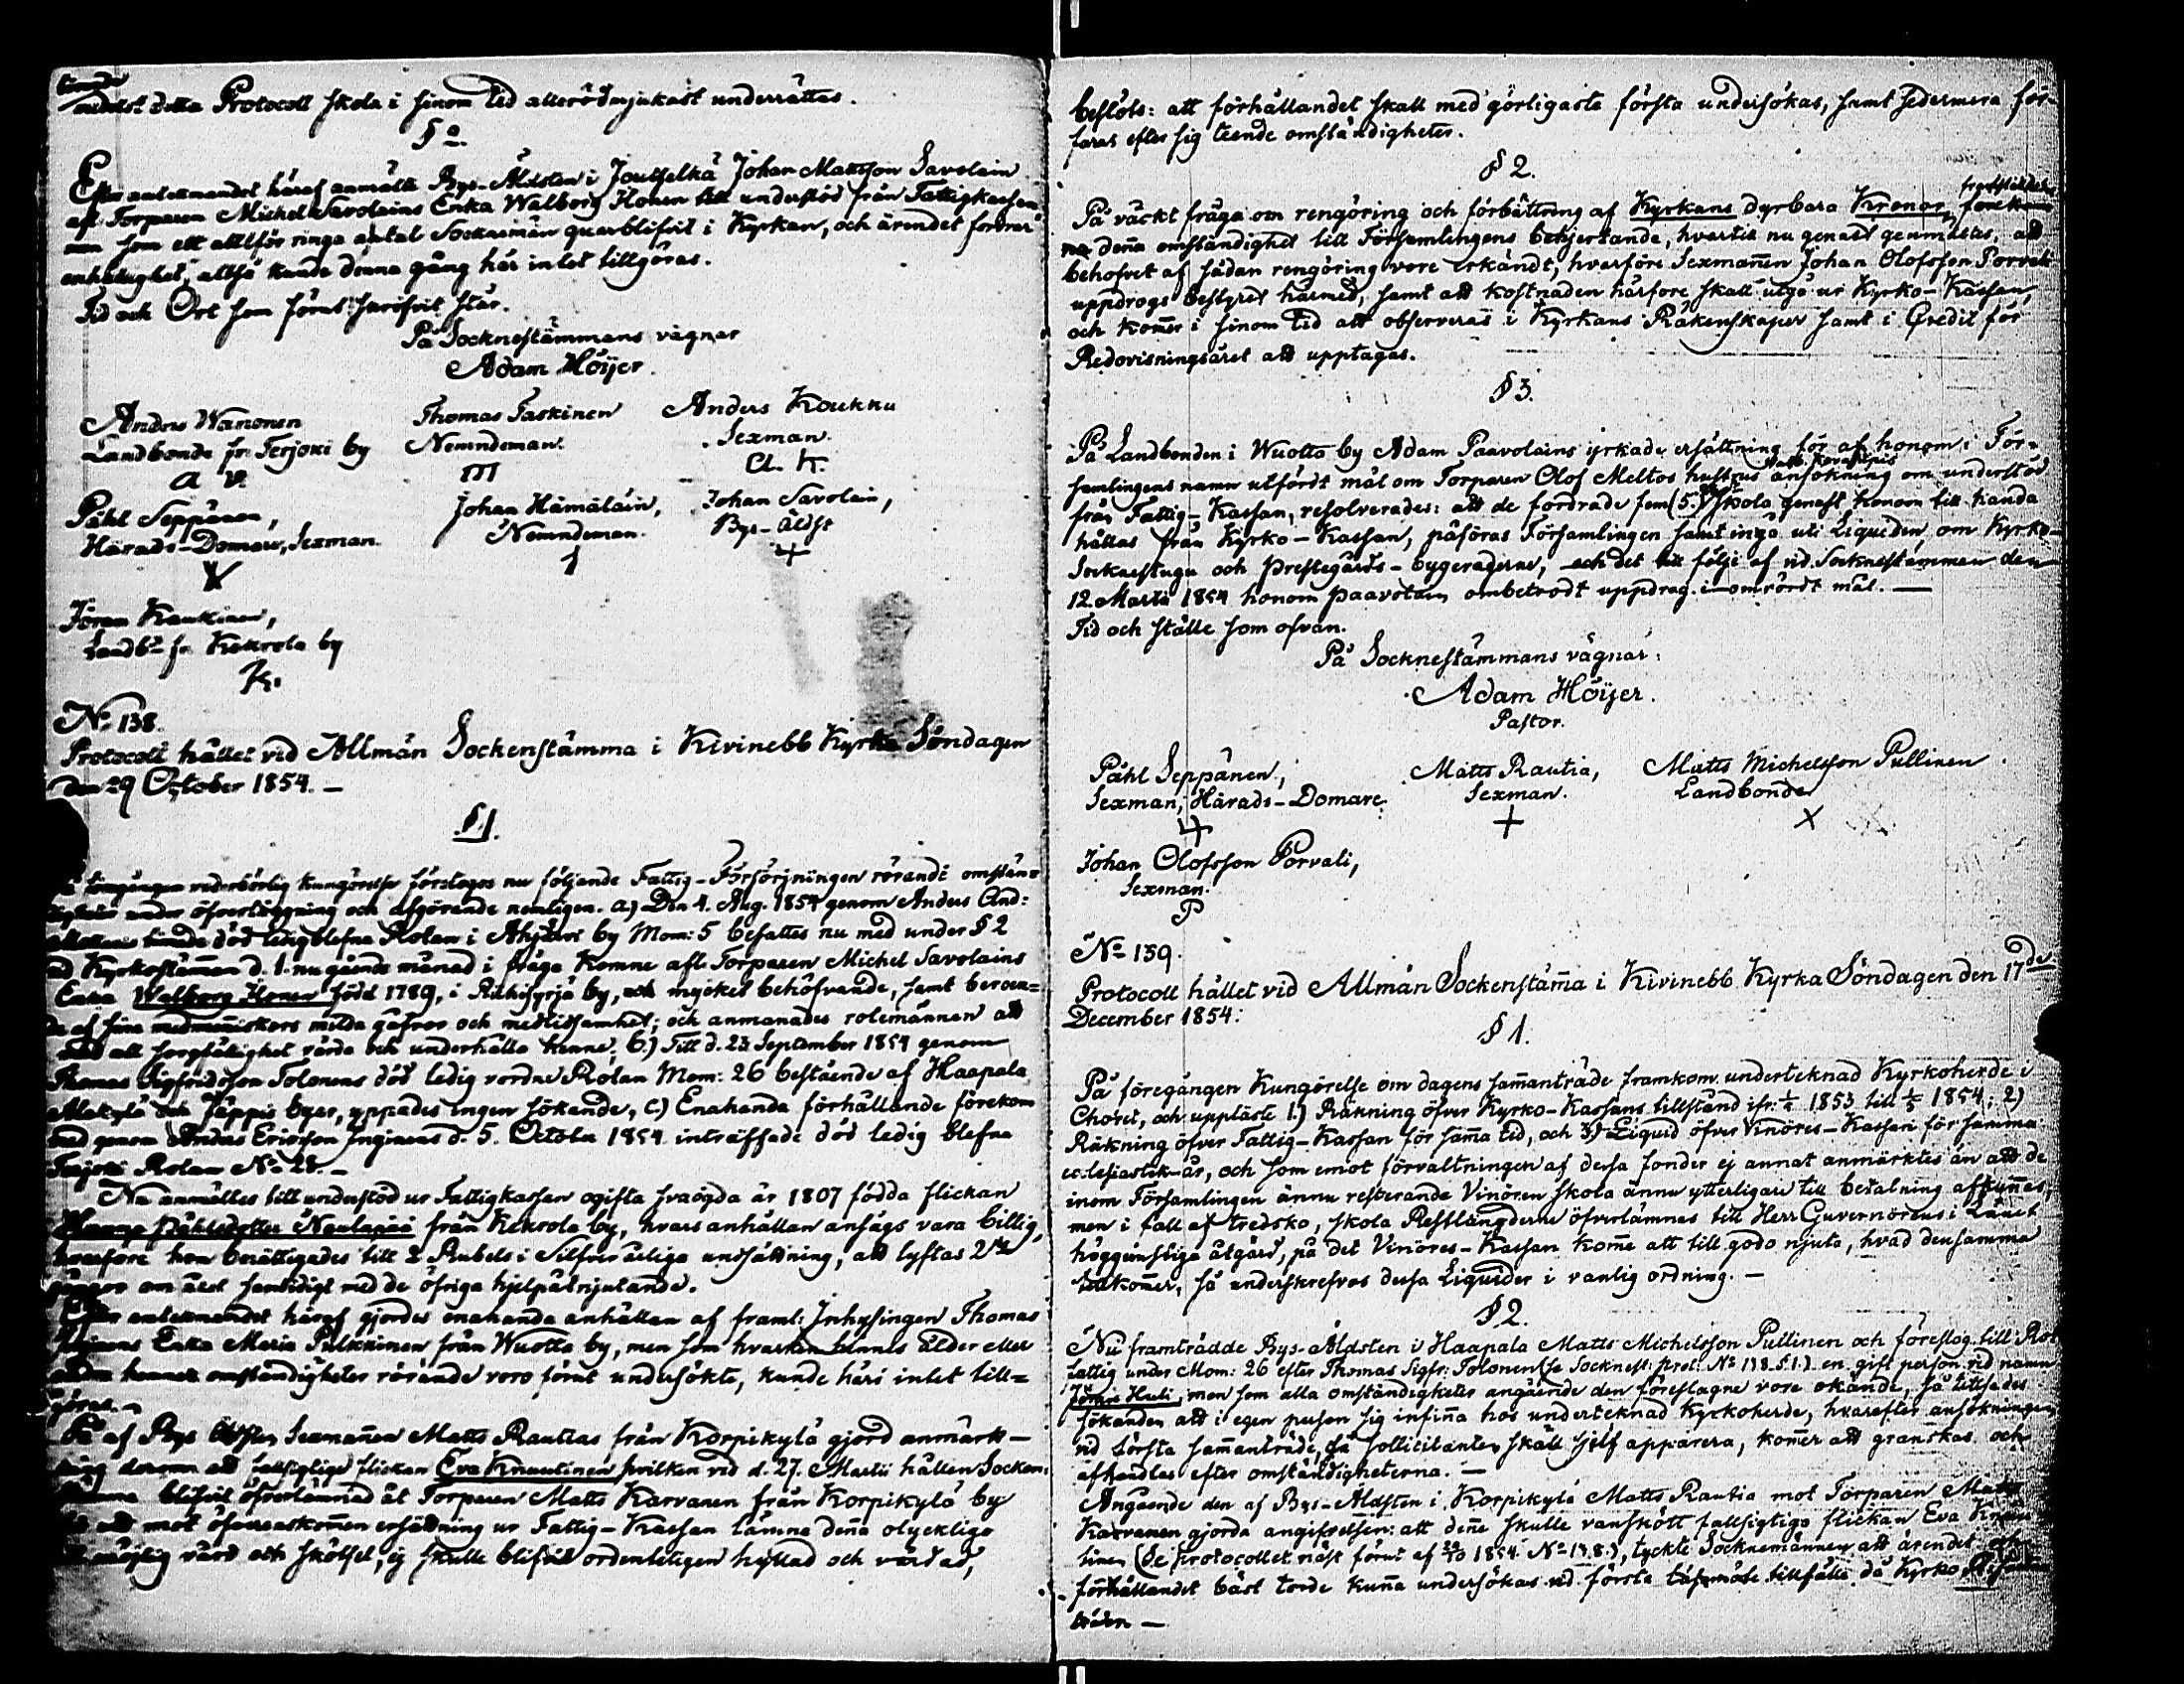 medelst detta Protocoll skola i sinom tid allerödmjukast underrättas.
§ 2.
Efter antecknandet häraf anmälte Bys-Åldsten i Joutselkä Johan Mattsson Savolain
afl. Torparen Michel Savolains Enka Walborg Honen till understöd från Fattigkassan
men som ett alltför ringa antal Sockenmän quarblifvit i Kyrkan, och ärendet fordrar
enhällighet, alltså kunde denna gång här intet tillgöras.
Tid och Ort som förut skrifvit står.
På Socknestämmans vägnar
Adam Höijer.
Anders Wanonen Thomas Taskinen Anders Koukku
Landbonde fr. Terjoki by Nemndeman. Sexman.
A. W. m A. K.
Påhl Seppänen, Johan Hämäläin, Johan Savolain,
Härads-Domare, Sexman. Nemndeman. Bys-Äldst
Jöran Kaukinen,
Landb. fr. Kekrola by
K.
No 138.
Protocoll hållet vid Allmän Sockenstämma i Kivinebb Kyrka Söndagen
den 29 October 1854. —
§ 1.
föregången vederbörlig kungörelse företogos nu följande Fattig-Försörjningen rörande omstän-
digheter under öfverläggning och afgörande nemligen. a) Den 4. Aug. 1854 genom Anders And:
timade död ledigblefne Rolan i Ahjärvi by Mom: 5 besattes nu med under § 2
vid Kyrkostämman d. 1. nu gående månad i fråga komne afl. Torparen Michel Savolains
Enka Walborg Honen född 1789, i Riihisyrjä by, och mycket behöfvande, samt beroen-
de af sina medmenniskors milda gåfvor och medlidsamhet; och anmanades rolemännen att
med all sorgfällighet vårda och underhålla henne; b.) Till d. 23 September 1854 genom
Thomas Sigfridsson Tolonens död ledig vordne Rolan Mom: 26 bestående af Haapala
Alakylä och Jäppis byar, yppades ingen sökande, c) Enahanda förhållande förekom
med genom Anders Ericsson Inginens d. 5. October 1854 inträffade död ledig blefne
Terjoki Rolan No 28. —
Nu anmältes till understöd ur Fattigkassan ogifta svaögda år 1807 födda flickan
Påhlsdotter Naulapää från Kekrola by, hvars anhållan ansågs vara billig,
hvarföre hon berättigades till 2 Rubels i Silfver årliga undsättning, att lyftas 2ne
gånger om året samtidigt med de öfriga hjelpåtnjutande.
Efter antecknandet häraf gjordes enahanda anhållan af framl: Inhysingen Thomas
Enka Maria Pulkkinen från Wuotta by, men som hvarken hennes ålder eller
andra hennes omständigheter rörande voro förut undersökte, kunde häri intet till-
göras. —
På af Bys Åldsten Sexmannen Matts Rautias från Korpikylä gjord anmärk-
ning derom att fallsigtiga flickan Eva Knuutinen hvilken vid d. 27. Martii hållen Socken-
stämma blifvit öfverlämnad åt Torparen Matts Karvanen från Korpikylä by
att mot öfverenskommen ersättning ur Fattig-Kassan lämna denna olyckliga
möjlig vård och skötsel, ej skulle blifvit ordenteligen hyllad och vårdad,
beslöts: att förhållandet skall med görligaste första undersökas, samt sedermera för-
faras efter sig teende omständigheter.
§ 2.
På väckt fråga om rengöring och förbättring af Kyrkans dyrbara Kronor,
denna omständighet till Församlingens behjertande, hvartil nu genast genmältes, att
behofvet af sådan rengöring vore erkändt, hvarföre Sexmannen Johan Olofsson Porvali
uppdrogs bestyret härmed, samt att kostnaden härföre skall utgå ur Kyrko-Kassan,
och kommer i sinom tid att observeras i Kyrkans Räkenskaper samt i Credit för
Redovisningsåret att upptagas.
§ 3.
På Landbonden i Wuotta by Adam Paavolains yrkade ersättning för af honom i För-
samlingens namn utfördt mål om Torparen Olof Meltos hustrus ansökning om understöd
från Fattig-Kassan, resolverades: att de fordrade fem (5.) skola genast honom till handa
hållas från Kyrko-Kassan, påföras Församlingen samt ingå uti Liquiden om Kyrko-
Sockenstugu och Prestegårds-byggnaderne, och det till följe af vid Socknestämman den
12. Martii 1854 honom Paavolain ombetrodt uppdrag i omrördt mål. —
Tid och ställe som ofvan.
På Socknestämmans vägnar:
Adam Höijer.
Pastor.
Påhl Seppänen, Matts Rautia, Matts Michelsson Pullinen.
Sexman, Härads-Domare. Sexman. Landbonde
Johan Olofsson Porvali,
Sexman.
P
No 139.
Protocoll hållet vid Allmän Sockenstämma i Kivinebb Kyrka Söndagen den 17de
December 1854:
§ 1.
På föregången Kungörelse om dagens sammanträde framkom undertecknad Kyrkoherde i
Choret, och uppläste 1.) Räkning öfver Kyrko-Kassans tillstånd ifr: 1853 till 1854; 2)
Räkning öfver Fattig-Kassan för samma tid, och 3.) Liquid öfver Vinöres-Kassan för samma
ecclesiastik-år, och som emot förvaltningen af dessa fonder ej annat anmärktes än att de
inom Församlingen ännu resterande Vinören skola ännu ytterligare till betalning afkunnas,
men i fall af tredsko, skola Restlängderne öfverlämnas till Herr Guvernörens i Länet
höggunstiga åtgärd, på det Vinöres-Kassan komme att till godo njuta, hvad densamma
tillkommer, så underskrefvos dessa Liquider i vanlig ordning. —
§ 2.
Nu framträdde Bys-Åldsten i Haapala Matts Michelsson Pullinen och föreslog till Rol
fattig under Mom: 26 efter Thomas Sigfr: Tolonen (se Socknest: prot: No 138. § 1.) en gift person vid namn
Huli, men som alla omständigheter angående den föreslagne vore okände, så tillsades
sökanden att i egen person sig infinna hos undertecknad Kyrkoherde, hvarefter ansökningen
vid första sammanträde, då sollicitanten skall sjelf apparera, kommer att granskas och
afhandlas efter omständigheterna. —
Angående den af Bys-Åldsten i Korpikylä Matts Rautia mot Torparen Matts
Karvanen gjorda angifvelsen: att denne skulle vanskött fallsigtiga flickan Eva Knuu-
tinen (Se protocollet näst förut af 29/10 1854 No 138.), tyckte Socknemännen att ärendet och
förhållandet bäst torde kunna undersökas vid första läsmöte tillfälle då Kyrko